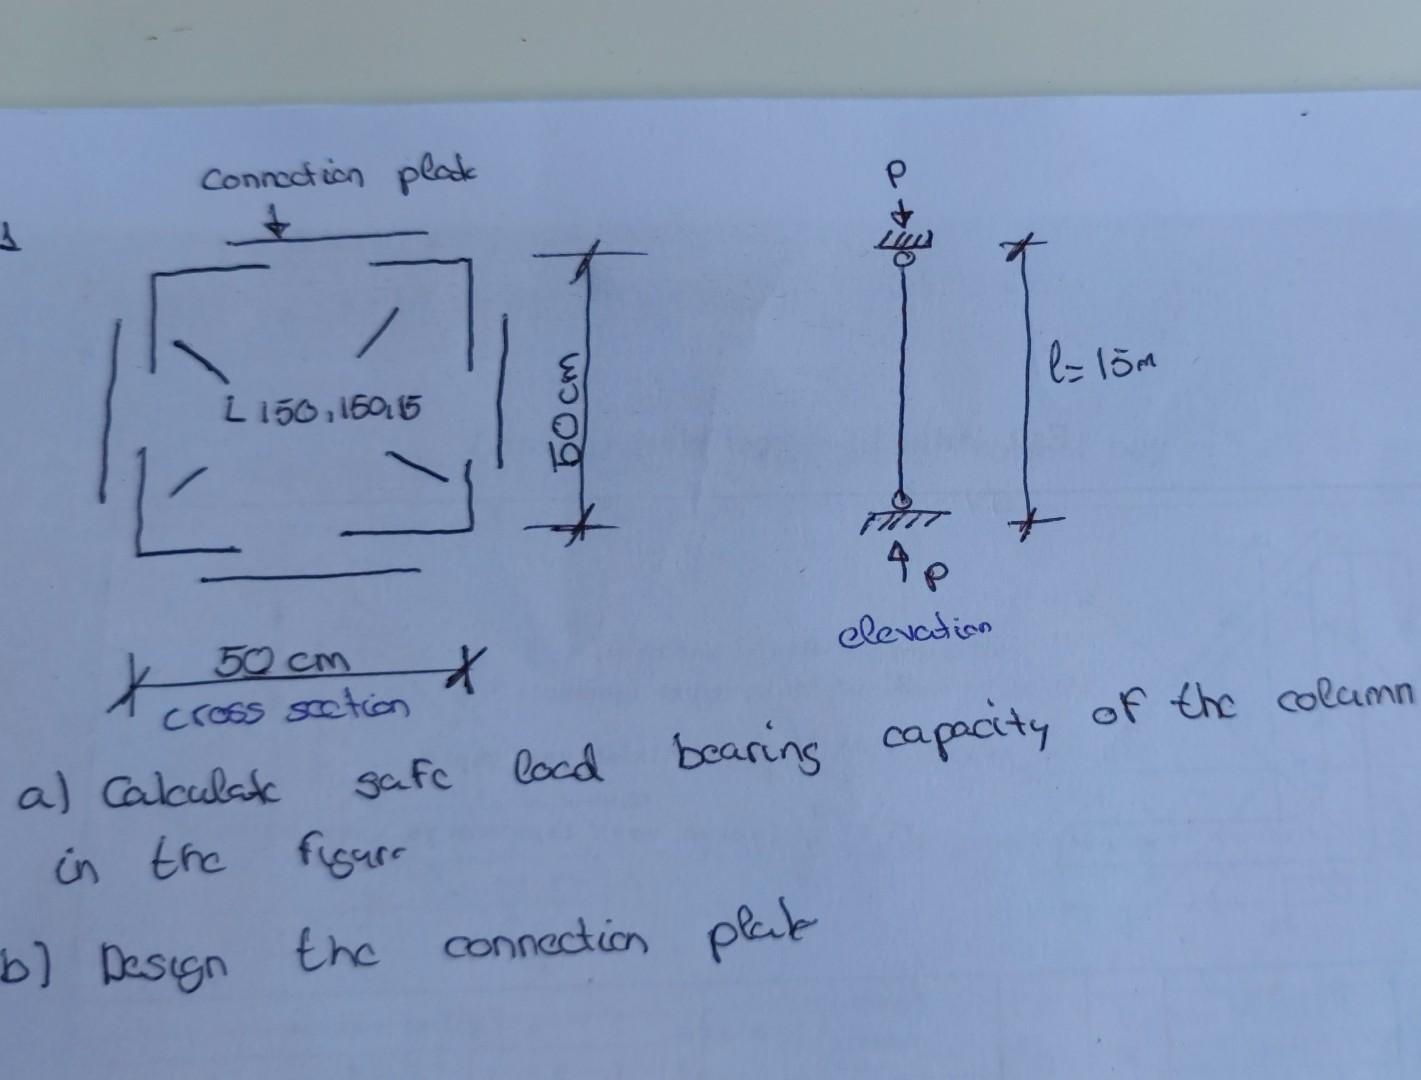 1
Connection plate
P
L 150,150,15
50 cm
l= 15m
P
elevation
50 cm
cross section
a) Calculate safe load bearing capacity of the column
in the figure
b) Design the connection plate